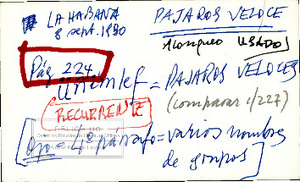 LA HABANA
8 sept. 1990
PAJAROS VELOCE
USADOS
Pág 224
= PAJAROS VELOCES
(comparar c/227)
RECURRENTE
[Ojo = 4º párrafo = varios nombres
de grupos]